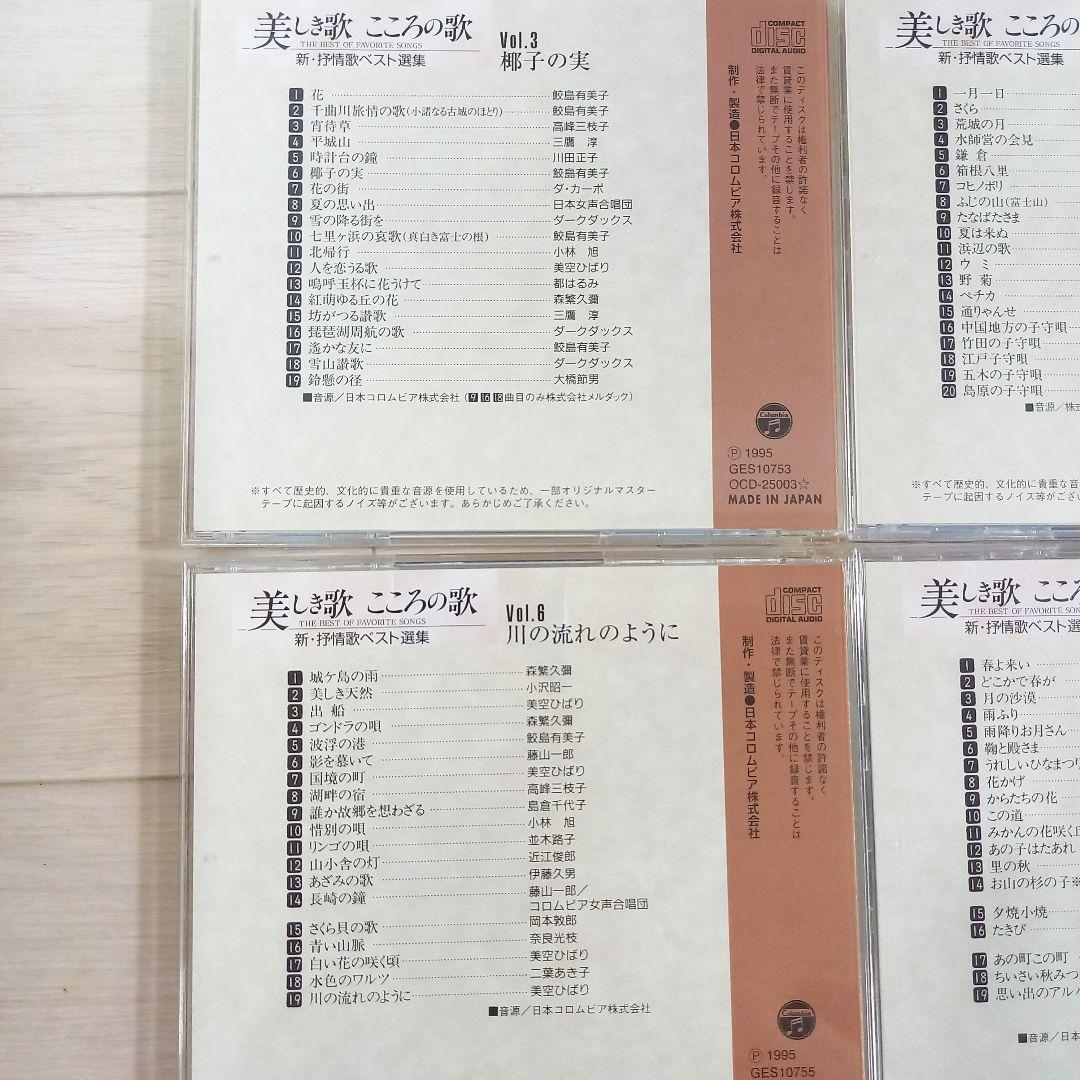 美しき歌 こころの歌
THE BEST OF FAVORITE SONGS
新・抒情歌ベスト選集
Vol.3
椰子の実
1 花 鮫島有美子
2 千曲川旅情の歌(小諸なる古城のほとり) 鮫島有美子
3 宵待草 高峰三枝子
4 平城山 三鷹 淳
5 時計台の鐘 川田正子
6 椰子の実 鮫島有美子
7 花の街 ダ・カーポ
8 夏の思い出 日本女声合唱団
9 雪の降る街を ダークダックス
10 七里ヶ浜の哀歌(真白き富士の根) 鮫島有美子
11 北帰行 小林 旭
12 人を恋うる歌 美空ひばり
13 嗚呼玉杯に花うけて 都はるみ
14 紅萌ゆる丘の花 森繁久彌
15 坊がつる讃歌 三鷹 淳
16 琵琶湖周航の歌 ダークダックス
17 遙かな友に 鮫島有美子
18 雪山讃歌 ダークダックス
19 鈴懸の径 大橋節男
■音源/日本コロムビア株式会社(9 16 18曲目のみ株式会社メルダック)
※すべて歴史的、文化的に貴重な音源を使用しているため、一部オリジナルマスター
テープに起因するノイズ等がございます。あらかじめご了承ください。
COMPACT
disc
DIGITAL AUDIO
このディスクは権利者の許諾なく
賃貸業に使用することを禁じます。
また無断でテープその他に録音することは
法律で禁じられています。
制作・製造●日本コロムビア株式会社
Columbia
Ⓟ 1995
GES10753
OCD-25003☆
MADE IN JAPAN
美しき歌 こころの
THE BEST OF FAVORITE SONGS
新・抒情歌ベスト選集
1 一月一日
2 さくら
3 荒城の月
4 水師営の会見
5 鎌 倉
6 箱根八里
7 コヒノボリ
8 ふじの山(富士山)
9 たなばたさま
10 夏は来ぬ
11 浜辺の歌
12 ウ ミ
13 野 菊
14 ペチカ
15 通りゃんせ
16 中国地方の子守唄
17 竹田の子守唄
18 江戸子守唄
19 五木の子守唄
20 島原の子守唄
■音源/株式
※すべて歴史的、文化的に貴重な音
テープに起因するノイズ等がござ
美しき歌 こころの歌
THE BEST OF FAVORITE SONGS
新・抒情歌ベスト選集
Vol.6
川の流れのように
1 城ケ島の雨 森繁久彌
2 美しき天然 小沢昭一
3 出 船 美空ひばり
4 ゴンドラの唄 森繁久彌
5 波浮の港 鮫島有美子
6 影を慕いて 藤山一郎
7 国境の町 美空ひばり
8 湖畔の宿 高峰三枝子
9 誰か故郷を想わざる 島倉千代子
10 惜別の唄 小林 旭
11 リンゴの唄 並木路子
12 山小舎の灯 近江俊郎
13 あざみの歌 伊藤久男
14 長崎の鐘 藤山一郎/
コロムビア女声合唱団
15 さくら貝の歌 岡本敦郎
16 青い山脈 奈良光枝
17 白い花の咲く頃 美空ひばり
18 水色のワルツ 二葉あき子
19 川の流れのように 美空ひばり
■音源/日本コロムビア株式会社
COMPACT
disc
DIGITAL AUDIO
このディスクは権利者の許諾なく
賃貸業に使用することを禁じます。
また無断でテープその他に録音することは
法律で禁じられています。
制作・製造●日本コロムビア株式会社
Columbia
Ⓟ 1995
GES10755
美しき歌 ここ
THE BEST OF FAVORITE SONGS
新・抒情歌ベスト選集
1 春よ来い
2 どこかで春が
3 月の沙漠
4 雨ふり
5 雨降りお月さん
6 鞠と殿さま
7 うれしいひなまつり
8 花かげ
9 からたちの花
10 この道
11 みかんの花咲く丘
12 あの子はたあれ
13 里の秋
14 お山の杉の子※
15 夕焼小焼
16 たきび
17 あの町この町
18 ちいさい秋みつ
19 思い出のアル
■音源/日本